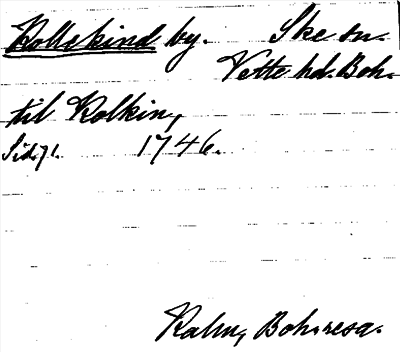 Kollekind by. Skee sn.
Vette hd. Boh.
til Kolkin,
Sid. 71. 1746.
Kalm, Boh. resa.